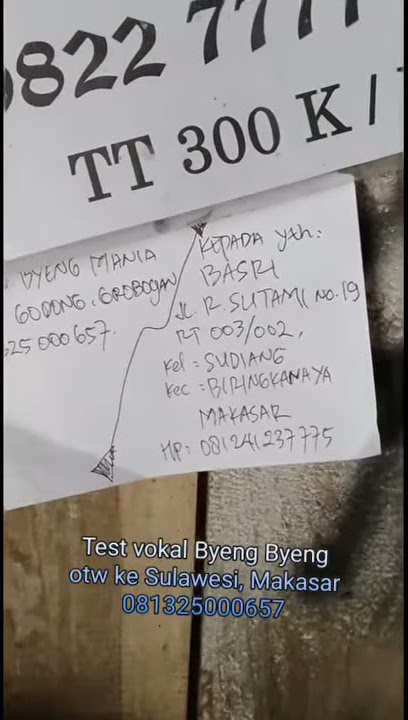 0822 7777
TT 300 K /
BYENG MANIA
GODONG, GROBOGAN
25000657.
KEPADA Yth:
BASRI
JL. R. SUTAMI NO. 19
RT 003/002,
Kel : SUDIANG
Kec : BIRINGKANAYA
MAKASAR
HP: 081241237775
Test vokal Byeng Byeng
otw ke Sulawesi, Makasar
081325000657